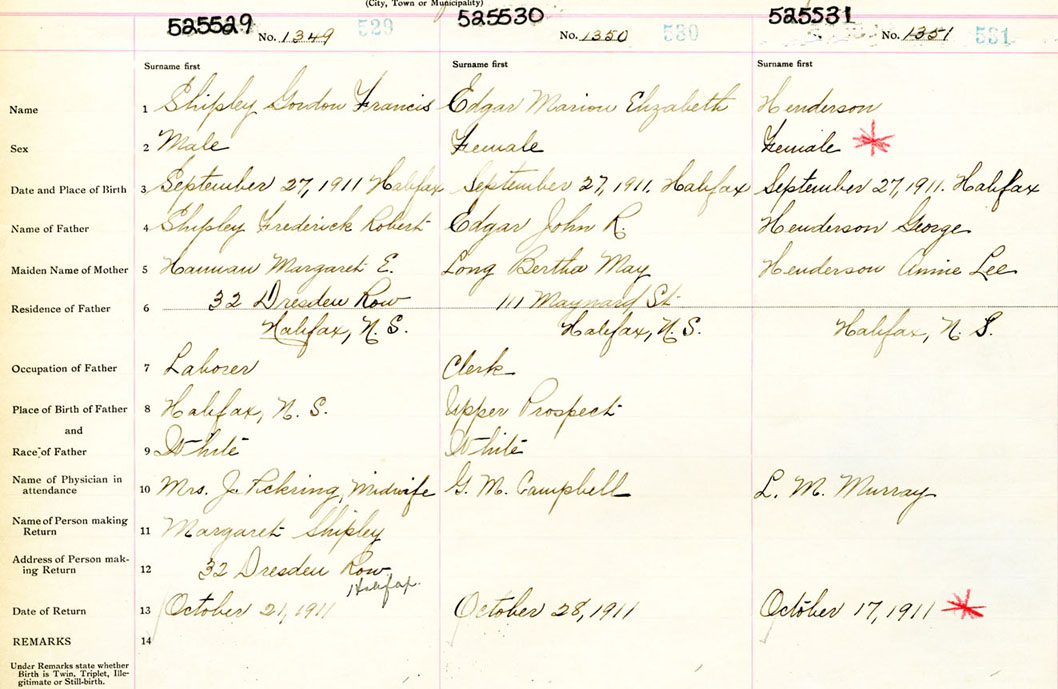 (City, Town or Municipality)
525529 525530 525531
No. 1349 529 No. 1350 530 No. 1351 531
Surname first Surname first Surname first
Name 1 Shipley Gordon Francis Edgar Marion Elizabeth Henderson
Sex 2 Male Female Female
Date and Place of Birth 3 September 27, 1911 Halifax September 27, 1911. Halifax September 27, 1911. Halifax
Name of Father 4 Shipley Frederick Robert Edgar John R. Henderson George
Maiden Name of Mother 5 Hannan Margaret E. Long Bertha May Henderson Annie Lee
32 Dresden Row 111 Maynard St.
Residence of Father 6
Halifax, N. S. Halifax, N. S. Halifax, N. S.
Occupation of Father 7 Laborer Clerk
Place of Birth of Father 8 Halifax, N. S. Upper Prospect
and
Race of Father 9 White White
Name of Physician in
attendance 10 Mrs. J. Pickring, Midwife G. M. Campbell L. M. Murray
Name of Person making
Return 11 Margaret Shipley
Address of Person mak-
ing Return 12 32 Dresden Row
Halifax.
Date of Return 13 October 21, 1911 October 28, 1911 October 17, 1911
REMARKS 14
Under Remarks state whether
Birth is Twin, Triplet, Ille-
gitimate or Still-birth.